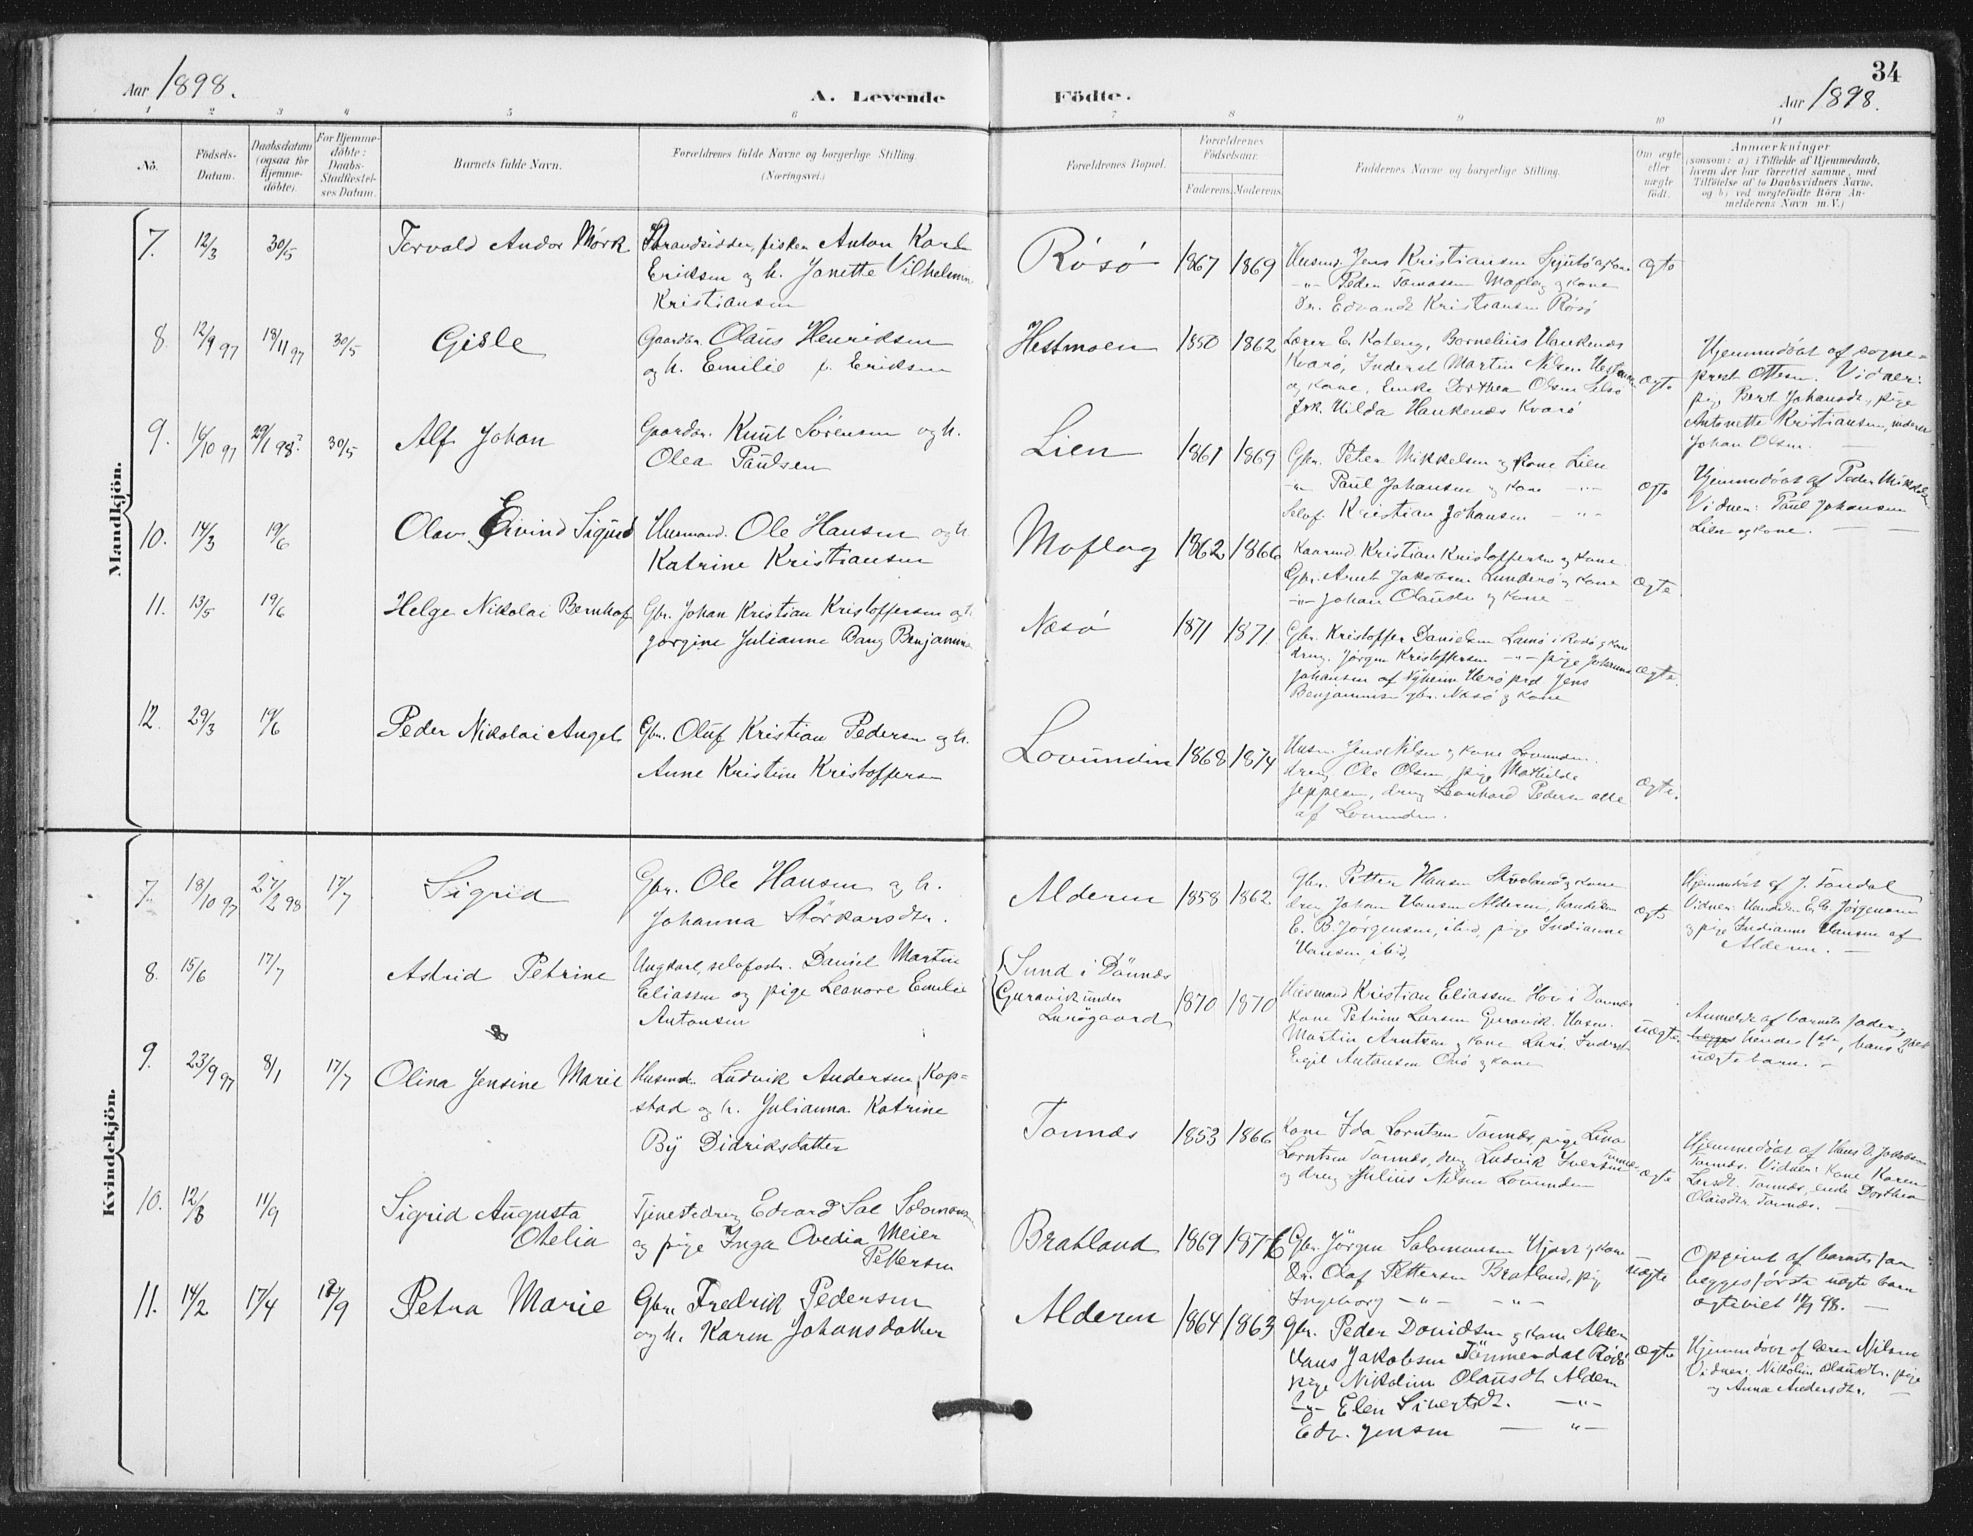 34
Aar 1898.
A. Levende
Födte.
Aar 1898.
1 2 3 4 5 6 7 8 9 10 11
No.
Födsels-Datum.
Daabsdatum (ogsaa for Hjemme-döbte).
For Hjemme-döbte: Daabs-Stadfæstel-ses Datum.
Barnets fulde Navn.
Forældrenes fulde Navne og borgerlige Stilling.
(Næringsvei.)
Forældrenes Bopæl.
Forældrenes Födselsaar.
Faderens.
Moderens.
Faddernes Navne og borgerlige Stilling.
Om ægte eller uægte födt.
Anmærkninger
(saasom: a) i Tilfælde af Hjemmedaab,
hvem der har forrettet samme, med
Tilföielse af to Daabsvidners Navne,
og b) ved uægtefödte Börn An-
melderens Navn m. V.)
Mandkjön.
7. 12/3 30/5 Torvald Andor Mørk
Strandsidder, fisker Anton Karl
Eriksen og h. Janette Vilhelmine
Kristiansen
Røsø 1867 1869
Husmd. Jens Kristiansen Sjutø og kone
-"- Peder Tomassen Moflag og kone
Dr. Edvardt Kristiansen Røsø
ægte
8. 12/9 97 18/11 97 30/5 Gisle
Gaardbr. Olaus Henriksen
og h. Emilie f. Eriksen
Hestmoen 1850 1862
Lærer E. Koteng, Cornelius Hankenæs
Kvarø, Inderst Martin Nilsen Hestmoen
og kone, Enke Dorthea Olsen Selsø
Frk. Hilda Hankenæs Kvarø
ægte
Hjemmedøbt af sogne-
prest Ottesen. Vidner:
pig Berit Johansdtr, pige
Antonette Kristiansen, inderst
Johan Olsen. —
9. 16/10 97 29/1 98? 30/5 Alf Johan
Gaardbr. Knut Sørensen og h.
Olea Paulsen
Lien 1861 1869
Gbr. Peter Mikkelsen og kone Lien
-"- Paul Johansen og kone -"-
Selvf. Kristian Johansen -"-
ægte
Hjemmedøbt af Peder Mikkelsen
Vidner: Paul Johansen
Lien og kone. —
10. 14/3 19/6 Olav Eivind Sigurd
Husmand. Ole Hansen og h.
Katrine Kristiansen
Moflag 1862 1866
Kaarmd. Kristian Kristoffersen og kone
Gbr. Arnt Jakobsen Lunderø og kone
-"- Johan Olausen og kone —
ægte
11. 13/5 19/6 Helge Nikolai Bernhof
Gbr. Johan Kristian Kristoffersen og h.
Jorgine Julianne Dang Benjaminsen
Næsø 1871 1871.
Gbr. Kristoffer Danielsen Lamø i Rødø og kone
dreng. Jørgen Kristoffersen -"- pige Johanna
Johansen af Nyheim Herø prd. Jens
Benjaminsen gbr. Næsø og kone
ægte.
12. 29/3 19/6 Peder Nikolai Angel
Gbr. Oluf Kristian Pedersen og h.
Anne Kristine Kristoffersen
Lovunden 1868 1874
Husm. Jens Nilsen og kone Lovunden.
dreng Ole Olsen, pige Mathilde
Jeppesen, dreng Leonhard Pedersen alle
af Lovunden.
ægte.
Kvindekjön.
7. 18/10 97 27/2 98 17/7 Sigrid
Gbr. Ole Hansen og h.
Johanna Størkarsdtr.
Alderen 1858 1862
Gbr. Petter Hansen og kone
dreng Johan Hansen Alderen, handelsm
E. B. Jørgensen, ibid, pige Indianne
Hansen, ibid.
ægte
Hjemmedøbt af J. Tondal
Vidner: Handelsm E.B. Jørgensen
og pige Indianne Hansen af
Alderen. —
8. 15/6 17/7 Astrid Petrine
Ungkarl, selvfostr. Daniel Martin
Eliassen og pige Leonore Emelie
Antonsen
Sund i Dønnæs
Guravik under
Lurøgaard
1870 1870
Husmand Kristian Eliassen Hov i Dønnæs
kone Petrine Larsen Guravik. Husm.
Martin Arntsen og kone Lurø, Inderst
Eegil Antonsen Onø og kone
uægte.
Anmeldt af barnets fader,
begges hendes 1ste, hans
uægte barn. —
9. 23/9 97 8/1 17/7 Olina Jensine Marie
Husmd. Ludvik Andersen Kop-
stad og h. Julianna Katrine
By Didriksdatter
Tonnæs 1853 1866
Kone Ida Lorntsen Tonnæs, pige Lina
Lorntsen Tonnæs, dreng Ludvik Iversen Tonnæs
og dreng Julius Nilsen Lovunden
ægte
Hjemmedøbt af Hans D. Jakobsen
Tonnæs. Vidner: Kone Karen
Larsdt. Tonnæs, enke Dorthea
Olausdtr Tonnæs. —
10. 12/8 11/9 Sigrid Augusta
Otelia
Tjenestedreng Edvard Sal Salomonsen
og pige Inga Ovedia Meier
Pettersen
Bratland 1869 1876
Gbr. Jørgen Salomonsen Hjart og kone
Dr. Olaf Pettersen Bratland, pig
Ingeborg -"- -"-
uægte
Opgivet af barnets far
begges første uægte barn
ægteviet 98. —
11. 14/2 17/4 18/9 Petra Marie
Gbr. Fredrik Pedersen
og h. Karen Johansdatter
Alderen 1864 1863
Gbr. Peder Davidsen og kone Alderen
Hans Jakobsen Tömmerdal Rödø
pige Nikoline Olausdt Alderen
-"- Elen Sivertsdt. -"-
Edv. Jensen — -"-
ægte
Hjemmedøbt af lærer Nilsen
Vidner: Nikoline Olausdtr. pige
og Anna Andersdtr. —